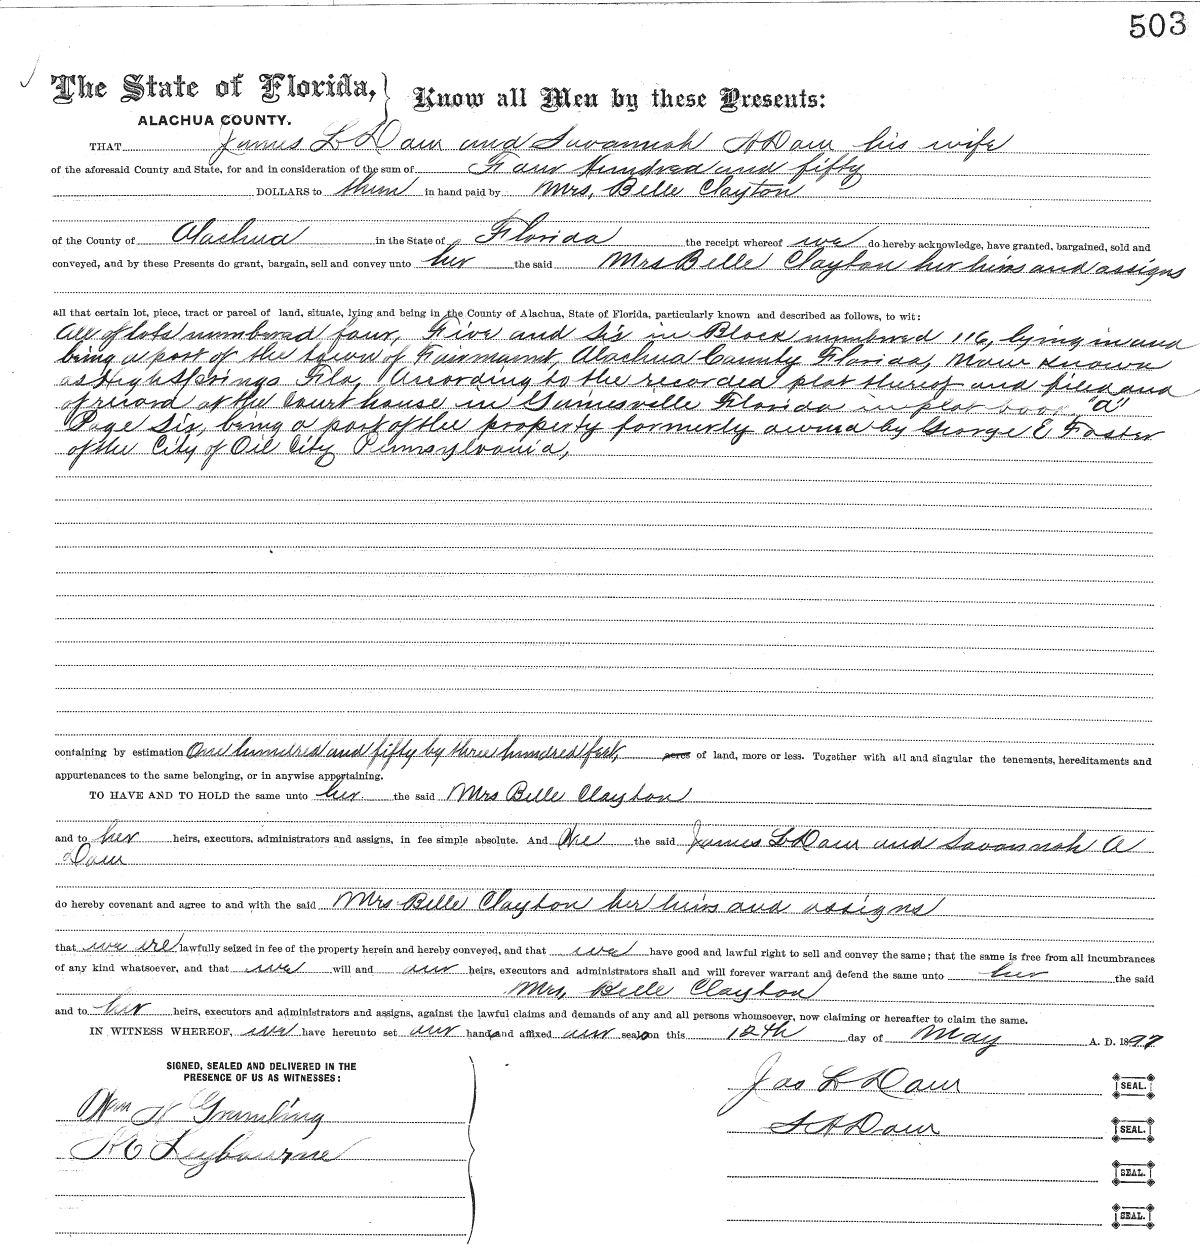 503
The State of Florida, Know all Men by these Presents:
ALACHUA COUNTY.
THAT James L Daur and Savannah A Daur his wife
of the aforesaid County and State, for and in consideration of the sum of Four Hundred and fifty
DOLLARS to them in hand paid by Mrs, Belle Clayton
of the County of Alachua in the State of Florida the receipt whereof we do hereby acknowledge, have granted, bargained, sold and
conveyed, and by these Presents do grant, bargain, sell and convey unto her the said Mrs Belle Clayton her heirs and assigns
all that certain lot, piece, tract or parcel of land, situate, lying and being in the County of Alachua, State of Florida, particularly known and described as follows, to wit:
All of lots numbered four, Five and Six in Block numbered 116, lying in and
being a part of the town of Fairmount, Alachua County Florida, Now Known
as High Springs Fla, According to the recorded plat thereof and filed and
of record at the Court house in Gainesville Florida in plat book "a"
Page Six, being a part of the property formerly owned by George E Foster
of the City of Oil City Pennsylvania,
containing by estimation One hundred and fifty by three hundred feet, acres of land, more or less. Together with all and singular the tenements, hereditaments and
appurtenances to the same belonging, or in anywise appertaining.
TO HAVE AND TO HOLD the same unto her the said Mrs Belle Clayton
and to her heirs, executors, administrators and assigns, in fee simple absolute. And We the said James L Daur and Savannah A
Daur
do hereby covenant and agree to and with the said Mrs Belle Clayton her heirs and assigns
that we are lawfully seized in fee of the property herein and hereby conveyed, and that we have good and lawful right to sell and convey the same; that the same is free from all incumbrances
of any kind whatsoever, and that we will and our heirs, executors and administrators shall and will forever warrant and defend the same unto her the said
Mrs, Belle Clayton
and to her heirs, executors and administrators and assigns, against the lawful claims and demands of any and all persons whomsoever, now claiming or hereafter to claim the same.
IN WITNESS WHEREOF, we have hereunto set our hands and affixed our seals on this 12th day of May A. D. 1897
SIGNED, SEALED AND DELIVERED IN THE
PRESENCE OF US AS WITNESSES:
Wm H Gramling
Jas L Daur SEAL.
S A Daur SEAL.
SEAL.
SEAL.